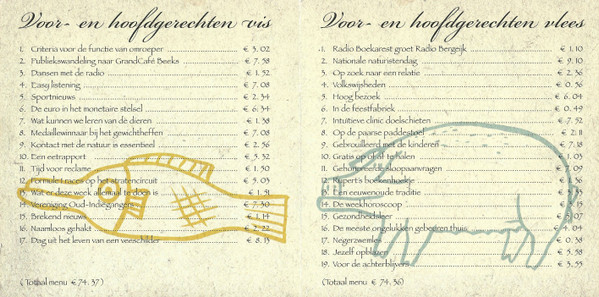 Voor- en hoofdgerechten vis
1. Criteria voor de functie van omroeper € 3. 02
2. Publiekswandeling naar GrandCafé Beeks € 7. 38
3. Dansen met de radio € 1. 32
4. Easy listening € 7. 08
5. Sportnieuws € 2. 34
6. De euro in het monetaire stelsel € 6. 34
7. Wat kunnen we leren van de dieren € 1. 38
8. Medaillewinnaar bij het gewichtheffen € 7. 08
9. Kontact met de natuur is essentieel € 2. 36
10. Een eetrapport € 3. 32
11. Tijd voor reclame € 1. 30
12. Formule1 races op het stratencircuit € 3. 03
13. Wat er deze week allemaal te doen is € 1. 31
14. Vereniging Oud-Indiëgangers € 7. 30
15. Brekend nieuws € 1. 14
16. Naamloos gehakt € 2. 22
17. Dag uit het leven van een veeschilder € 8. 13
(Totaal menu € 74. 37)
Voor- en hoofdgerechten vlees
1. Radio Boekarest groet Radio Bergeijk € 1. 10
2. Nationale naturistendag € 9. 10
3. Op zoek naar een relatie € 2. 36
4. Volkswijsheden € 0. 36
5. Hoog bezoek € 6. 04
6. In de feestfabriek € 0. 49
7. Intuïtieve clinic doelschieten € 7. 52
8. Op de paarse paddestoel € 2. 11
9. Gebrouilleerd met de kinderen € 7. 18
10. Gratis op of af te halen € 1. 03
11. Gehonoreerde knoopaanvragen
12. Rupert's boekenhoekje
13. Een eeuwenoude traditie
14. De weekhoroscoop
15. Gezondheidsleer € 3. 07
16. De meeste ongelukken gebeuren thuis € 4. 04
17. Negerzwemles € 0. 38
18. Jezelf opblazen € 5. 53
19. Voor de achterblijvers
(Totaal menu € 74. 36)